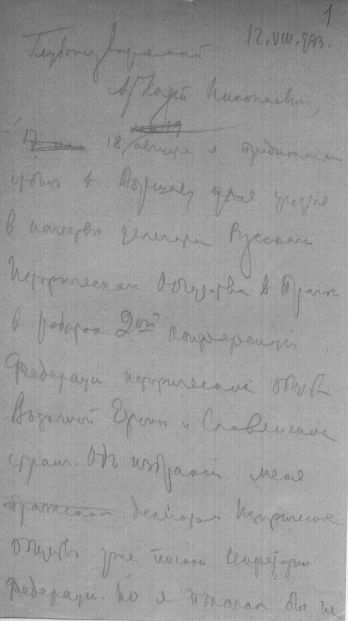 1
12.VIII.933.
Глубокоуважаемый
Аркадий Николаевич,
18 августа я предполагаю
в Варшаву для участия
в качестве делегата Русского
Исторического Общества в Праге
в работах 2ой конференции
Федерации исторических обществ
Восточной Европы и Славянских
стран. Об избрании меня
делегатом Исторического
Общества уже писано Секретарю
Федерации. Но я желал бы не